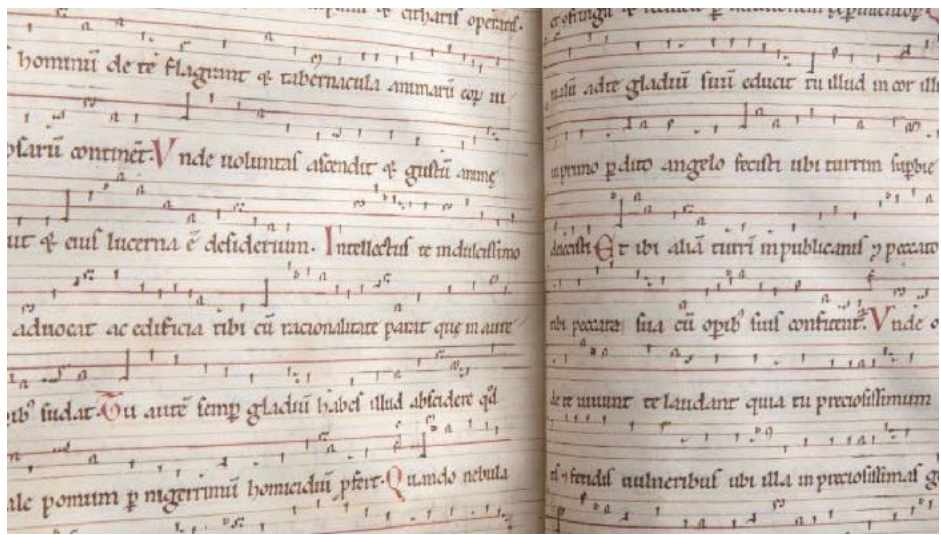 & citharis operaris.
hominū de te flagrant & tabernacula animarū eoꝝ ui
ipsarū continet. Vnde uoluntas ascendit & gustū animę
& eius lucerna ē desiderium. Intellectus te in dulcissimo
aduocat ac edificia tibi cū racionalitate parat que in aure
opib᷒ sudat. Tu autē semp gladiū habes illud abscidere qd̓
pomum ꝑ nigerrimū homicidiū ꝓfert. Quando nebula
malū ad te gladiū suū educit tu illud in cor illi
in primo ꝑdito angelo fecisti ubi turrim supbie
deiecisti Et ibi aliā turrī in publicanis ⁊ peccato
tibi peccata sua cū opib᷒ suis confitent᷒. Vnde o
de te uiuunt te laudant quia tu preciosissimum
es fetidis uulneribus ubi illa in preciosissimas g